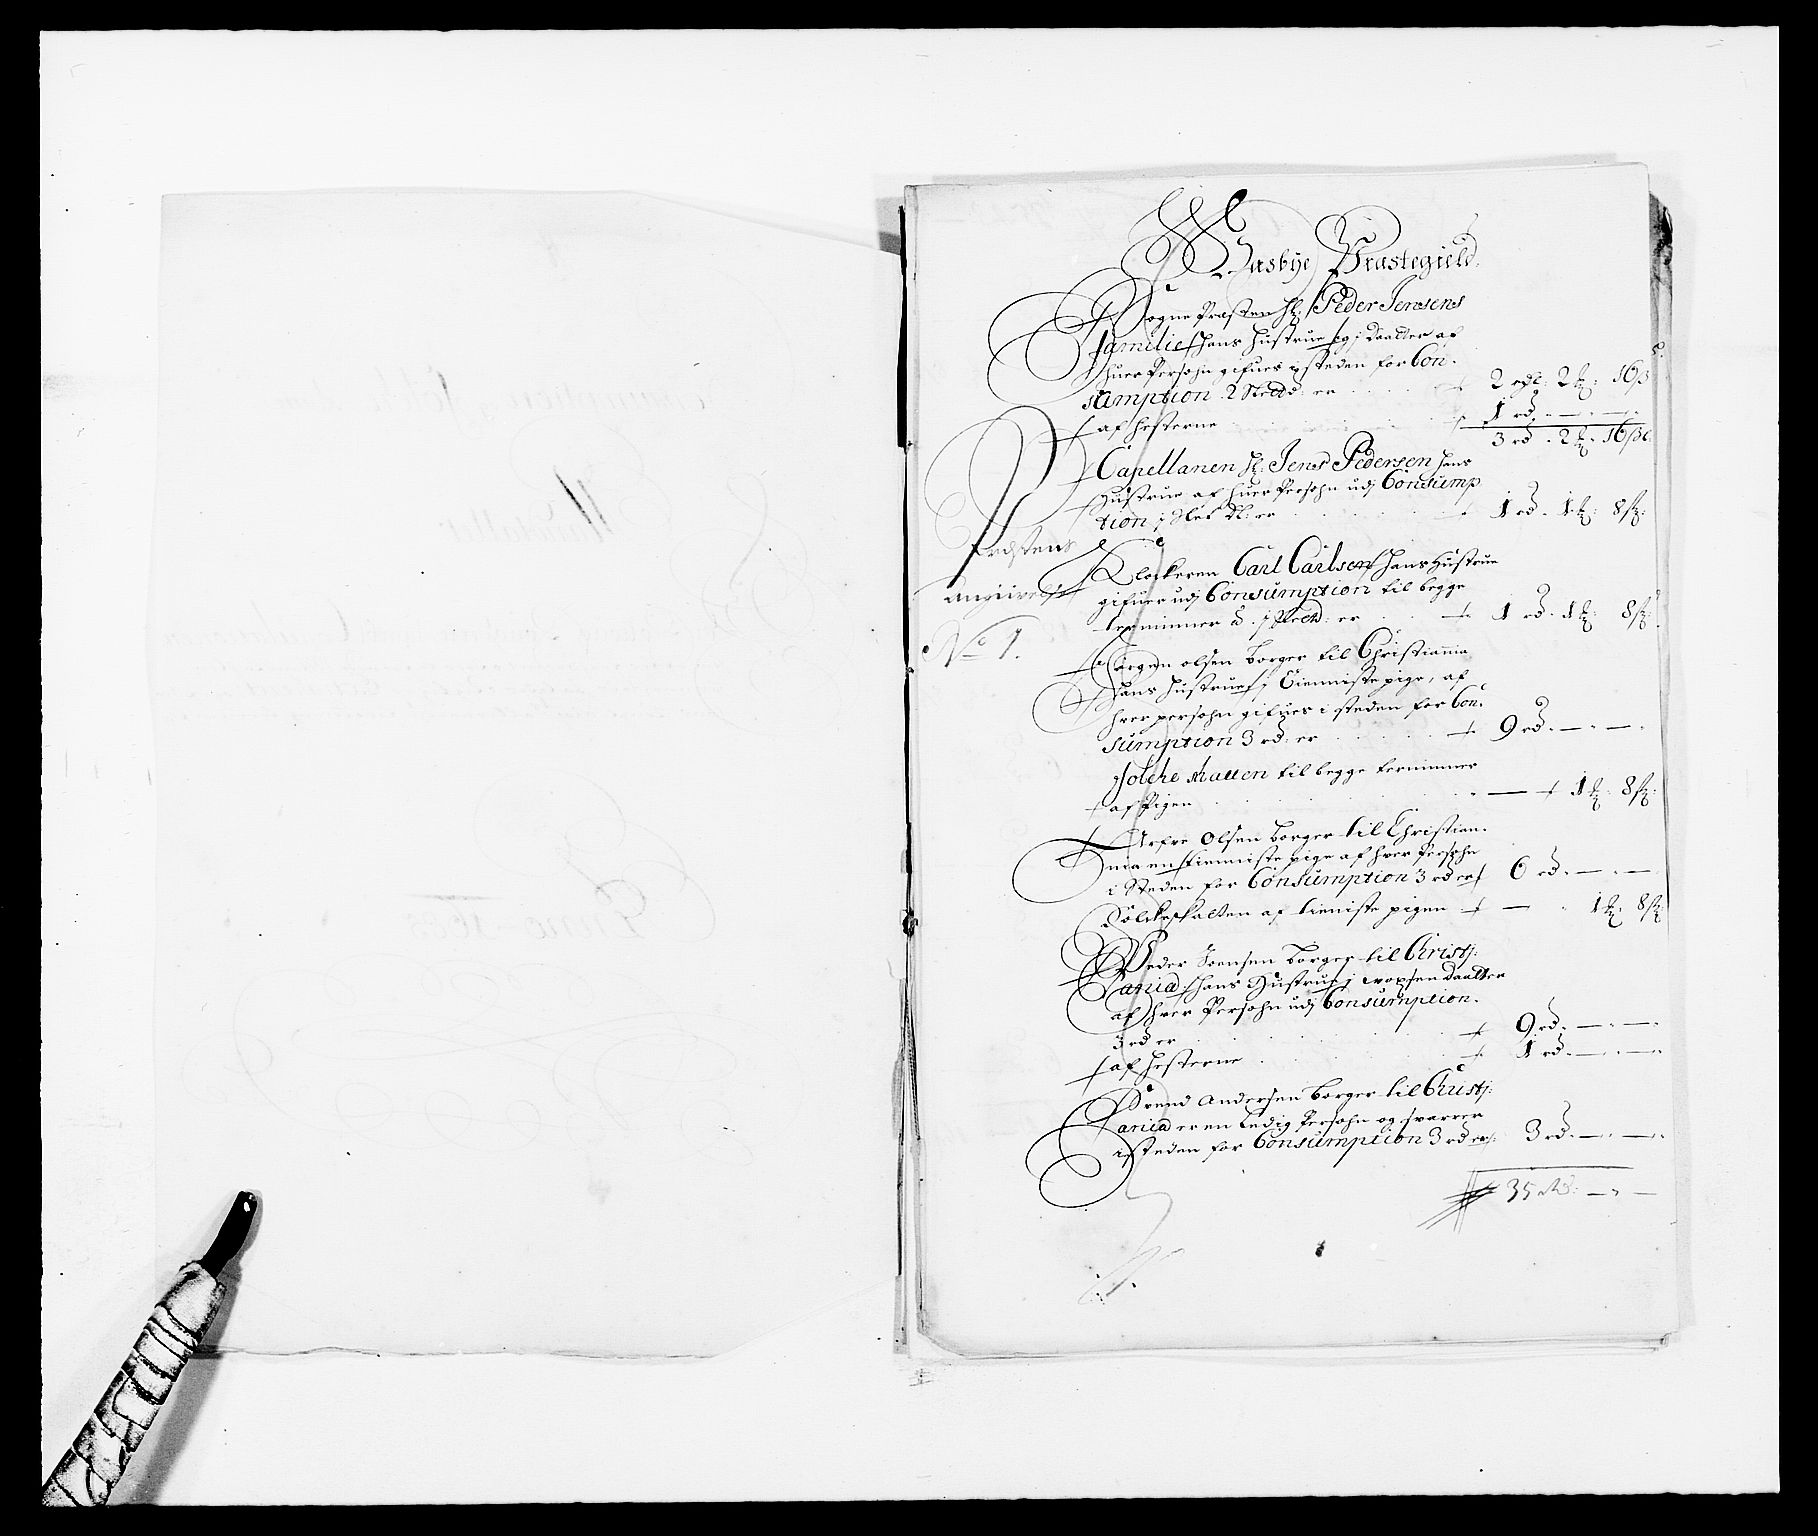 Aasbije Præstegield.
Sogne Præsten Hr: Peder Jensens
familie, hans hustrue og j daatter af
huer Persohn gifues i steden for Con-
sumption 2 Rixd: er 2 rdl: 2 mk: 16 s
af hesterne 1 rd — —
3 rd. 2 mk. 16 s
Capellanen Hr: Jens Pedersen hans
Hustrue af huer Persohn udj Consump
tion j Slet dl: er 1 rd. 1 mk: 8 s:
Præstens
Angiivelse
No 1.
Klockeren Carl Carlsen hans Hustrue
gifuer udj Consumption til begge
terminner a j Slectd: er 1 rd. 1 mk: 8 s:
Jørgen olsen borger til Christiania
hans hustrue j tienniste pige, af
hver persohn gifues i steden for Con-
sumption 3 rd: er 9 rd. — —
folche skatten til begge terminner
af Pigen — 1 mk: 8 s:
Arfve Olsen borger til Christian-
nia en tienniste pige af hver Persohn
i Steden for Consumption 3 rd er 6 rd. — —
Folckeskatten af tieniste pigen — 1 mk: 8 s:
Peder Svensen borger til Christj-
ania, hans Hustrue j voxsen daatter
af hver Persohn udj Consumption.
3 rd er 9 rd. — —
af hesterne 1 rd. — —
Svend Andersen borger til Christj-
ania er en ledig Persohn og svarer
i steden for Consumption 3 rd er 3 rd. — —
35 Rd: — —
Anno 1685